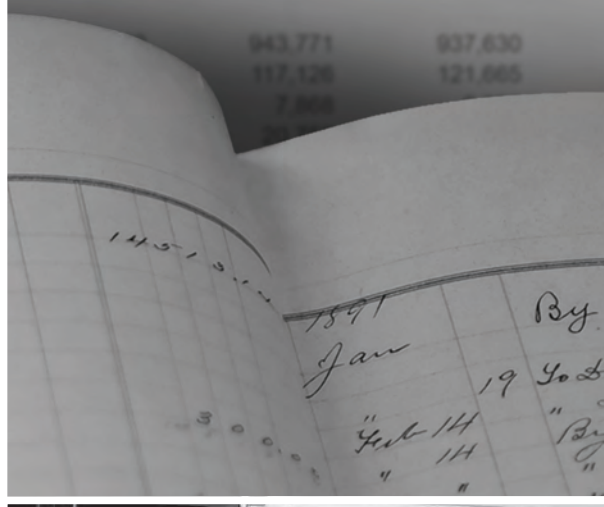 943,771 937,630
117,126 121,665
7,868
1891
By
Jan
19 To D
"
Feb 14 "
By
" 14
" "
300.00